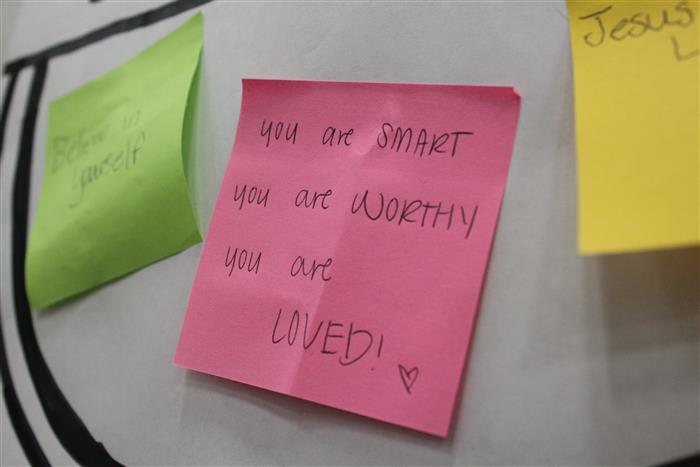 Believe in
yourself
you are SMART
you are WORTHY
you are
LOVED!
Jesus
L